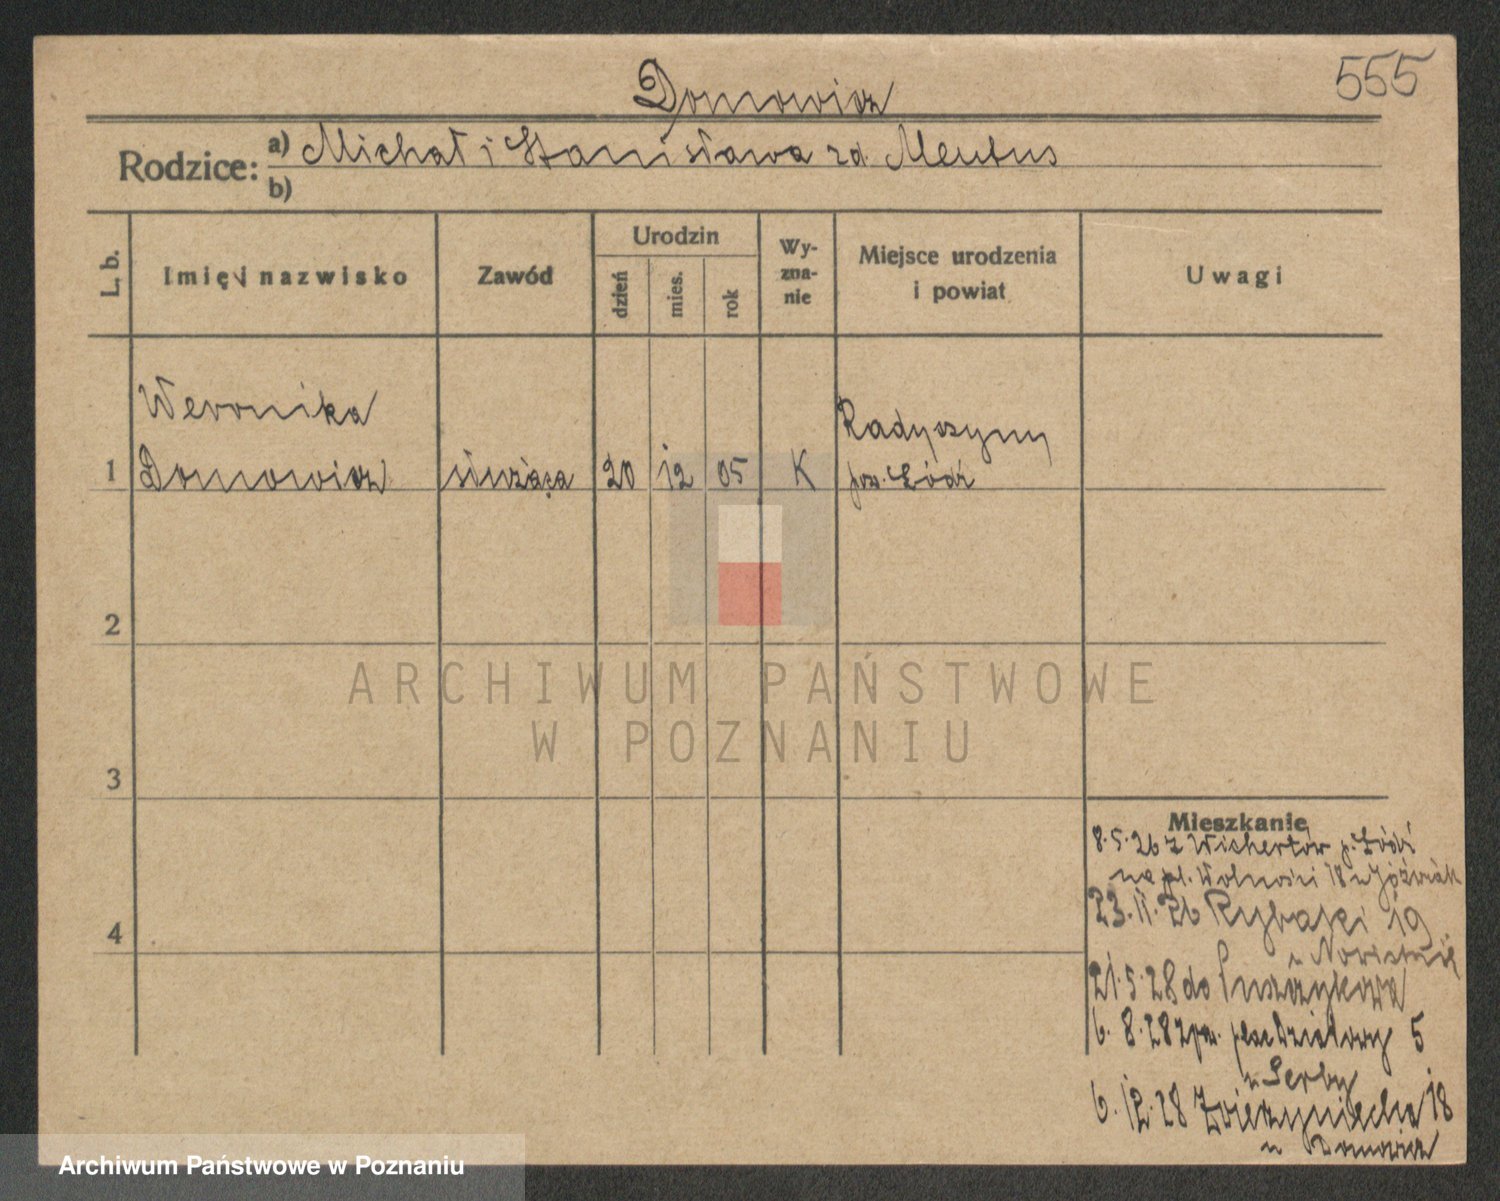 555
Domowicz
Rodzice: a) Michał i Stanisława zd. Mentus
b)
L. b. Imię i nazwisko Zawód Urodzin dzień mies. rok Wyznanie Miejsce urodzenia i powiat Uwagi
Weronika Radyczyny
1 Domowicz służąca 20 12 05 K pow. Łódź
2
3
4
Mieszkanie
8.5.26 z Wichertów p. Łódź
na pl. Wolności 18 u Jóźwiak
23.11.26 Rybaki 19
u
21.5.28 do Puszczykowa
6.8.28 z pow. plac Działowy 5
u Serby
6.12.28 Zwierzyniecka 18
u Domowicz
ARCHIWUM PAŃSTWOWE
W POZNANIU
Archiwum Państwowe w Poznaniu